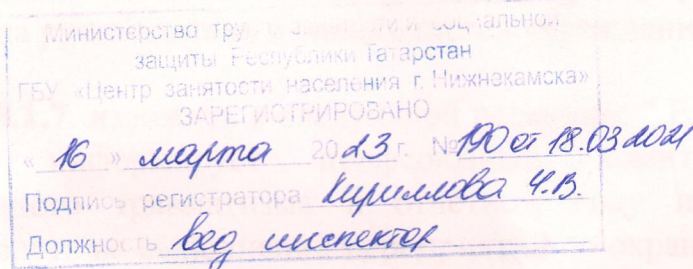 Министерство труда, занятости и социальной
защиты Республики Татарстан
ГБУ «Центр занятости населения г. Нижнекамска»
ЗАРЕГИСТРИРОВАНО
«16» марта 2023 г. № 190 от 18.03.2021
Подпись регистратора Кириллова Ч.В.
Должность вед инспектор